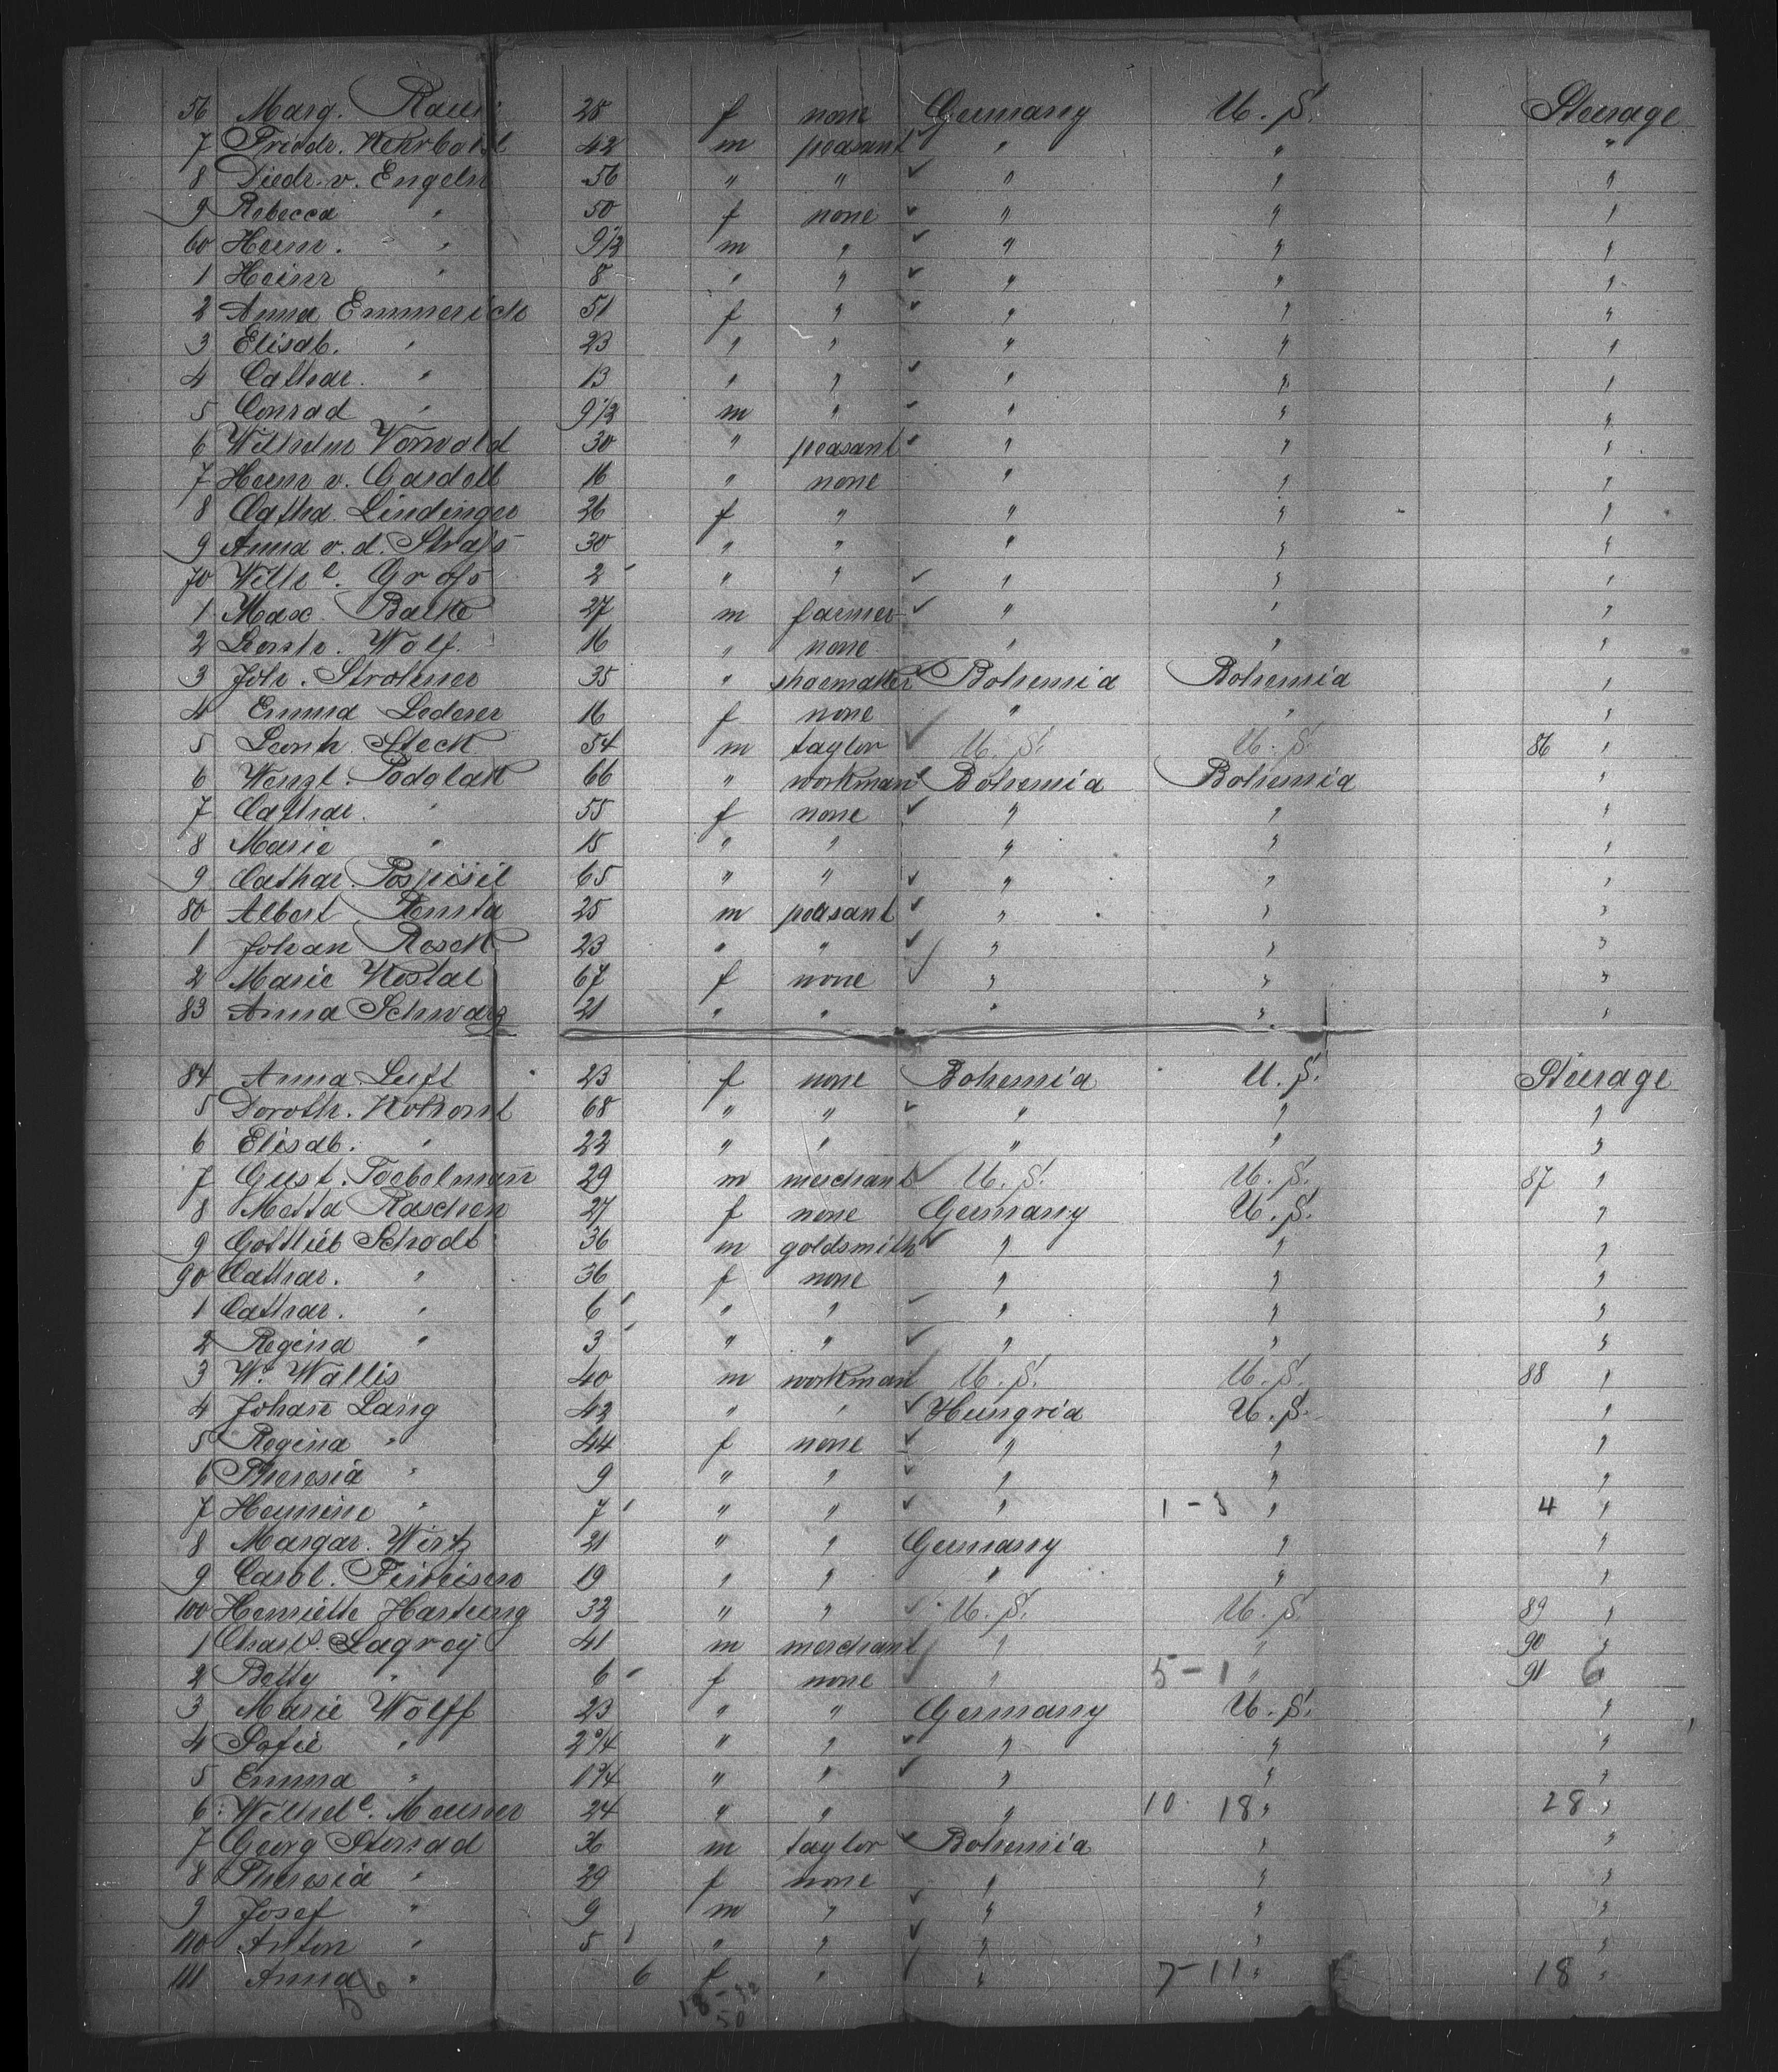 56 Marg. Raus 28 f none Germany U. S. Steerage
7 Friedr. Wehrbo 42 m peasant " " "
8 Diedr. v. Engeln 56 " " " " "
9 Rebecca " 50 f none " " "
60 Herm. " 9 1/2 m " " " "
1 Heinr " 8 " " " " "
2 Anna Emmerich 51 f " " " "
3 Elisab. " 23 " " " " "
4 Cathar. " 13 " " " " "
5 Conrad " 9 1/2 m " " " "
6 Wilhelm Vorwold 30 " peasant " " "
7 Herm v. Gardell 16 " none " " "
8 Catha. Lindinger 26 f " " " "
9 Anna v. d. Strass 30 " " " " "
70 Wilhe. Gross 2 " " " " "
1 Max Balke 27 m farmer " " "
2 Leonh. Wolf. 16 " none " " "
3 Joh. Strohmer 35 " shoemaker Bohemia Bohemia "
4 Emma Lederer 16 f none " " "
5 Leonh. Steck 54 m taylor U. S. U. S. 86 "
6 Wenzl. Podolak 66 " workman Bohemia Bohemia "
7 Cathar. " 55 f none " " "
8 Marie " 15 " " " " "
9 Cathar. Pospisil 65 " " " " "
80 Albert 25 m peasant " " "
1 Johan Rosek 23 " " " " "
2 Marie Kostal 67 f none " " "
83 Anna Schwarz 21 " " " " "
84 Anna Luft 23 f none Bohemia U. S. Steerage
5 Doroth. Kohout 68 " " " " "
6 Elisab. " 22 " " " " "
7 Gust. Toebelmann 29 m merchant U. S. U. S. 87 "
8 Metta Raschen 27 f none Germany U. S. "
9 Gottlieb Schodt 36 m goldsmith " " "
90 Cathar. " 36 f none " " "
1 Cathar. " 6 " " " " "
2 Regina " 3 " " " " "
3 Wt. Wallis 40 m workman U. S. U. S. 88 "
4 Johan Lang 42 " " Hungria U. S. "
5 Regina " 44 f none " " "
6 Theresia " 9 " " " " "
7 Hermine " 7 " " " 1-3 " 4 "
8 Margar. Wirtz 21 " " Germany " "
9 Carol. 19 " " " " "
100 Henriette Hartung 32 " " U. S. U. S. 89 "
1 Charls. Lagroy 41 m merchant " " 90 "
2 Betty " 6 f none " 5-1 " 91 6 "
3 Marie Wolff 23 " " Germany U. S. "
4 Sofie " 2 3/4 " " " " "
5 Emma " 1 3/4 " " " " "
6 Wilhele. Meusser 24 " " " 10 18 " 28 "
7 Georg Stersad 36 m taylor Bohemia " "
8 Theresia " 29 f none " " "
9 Josef " 9 m " " " "
110 Anton " 5 " " " " "
111 Anna " 6 f " " 7-11 " 18 "
56 18-32
50